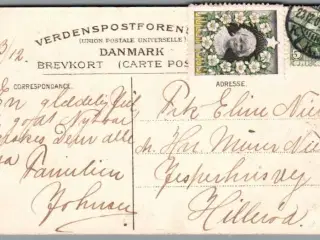 VERDENSPOSTFOREN
(UNION POSTALE UNIVERSELLE)
DANMARK
BREVKORT (CARTE POS
CORRESPONDANCE.
ADRESSE.
/12.
En glædelig Jul
godt Nytaar
Alle
Familien
Johnsen
Frk. Eline Nie
Hr. Murer Nie
Jespersensvej
Hillerød.